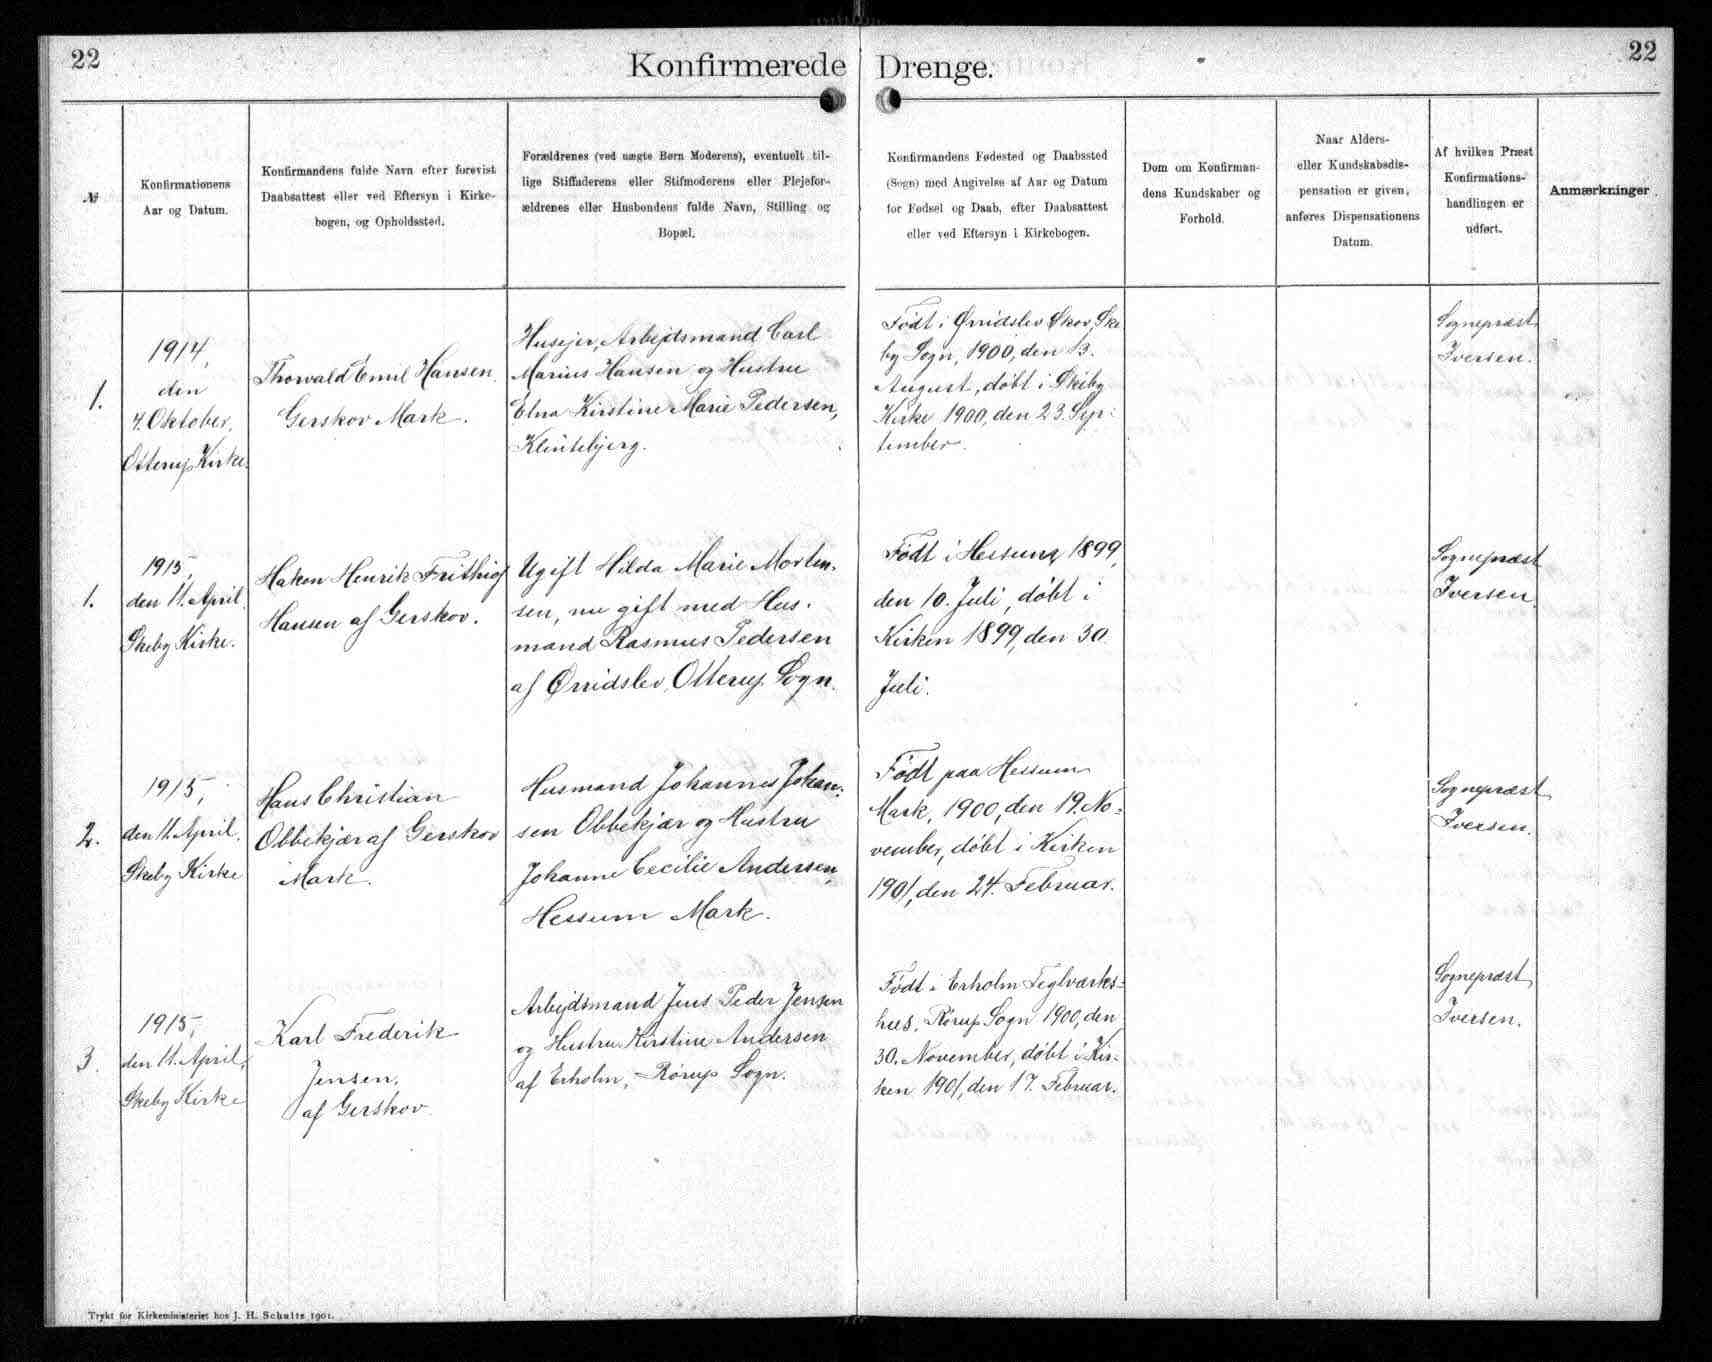 22
Konfirmerede Drenge.
22
№
Konfirmationens
Aar og Datum.
Konfirmandens fulde Navn efter forevist
Daabsattest eller ved Eftersyn i Kirke-
bogen, og Opholdssted.
Forældrenes (ved uægte Børn Moderens), eventuelt til-
lige Stiffaderens eller Stifmoderens eller Plejefor-
ældrenes eller Husbondens fulde Navn, Stilling og
Bopæl.
Konfirmandens Fødested og Daabssted
(Sogn) med Angivelse af Aar og Datum
for Fødsel og Daab, efter Daabsattest
eller ved Eftersyn i Kirkebogen.
Dom om Konfirman-
dens Kundskaber og
Forhold.
Naar Alders-
eller Kundskabsdis-
pensation er given,
anføres Dispensationens
Datum.
Af hvilken Præst
Konfirmations-
handlingen er
udført.
Anmærkninger
1.
1914,
den
4. Oktober,
Otterup Kirke.
Thorvald Emil Hansen,
Gerskov Mark.
Husejer, Arbejdsmand Carl
Marius Hansen og Hustru
Elna Kirstine Marie Pedersen,
Klintebjerg.
Født i Ørridslev Skov, Ske
by Sogn, 1900, den 13.
August, døbt i Skeby
Kirke, 1900, den 23. Sep-
tember.
Sognepræst
Iversen.
1.
1915,
den 11. April,
Skeby Kirke.
Hakon Henrik Frithiof
Hansen af Gerskov.
Ugift Hilda Marie Morten-
sen, nu gift med Hus-
mand Rasmus Pedersen
af Ørridslev, Otterup Sogn.
Født i Hessum, 1899,
den 10. Juli, døbt i
Kirken 1899, den 30.
Juli.
Sognepræst
Iversen.
2.
1915,
den 11. April,
Skeby Kirke
Hans Christian
Obbekjær af Gerskov
Mark.
Husmand Johannes Johan-
sen Obbekjær og Hustru
Johanne Cecilie Andersen,
Hessum Mark.
Født paa Hessum
Mark, 1900, den 19. No-
vember, døbt i Kirken
1901, den 24. Februar.
Sognepræst
Iversen.
3.
1915,
den 11. April,
Skeby Kirke
Karl Frederik
Jensen,
af Gerskov.
Arbejdsmand Jens Peder Jensen
og Hustru Kirstine Andersen
af Erholm, Rørup Sogn.
Født i Erholm Teglværks-
hus, Rørup Sogn 1900, den
30. November, døbt i Kir-
ken 1901, den 17. Februar.
Sognepræst
Iversen.
Trykt for Kirkeministeriet hos J. H. Schultz 1901.